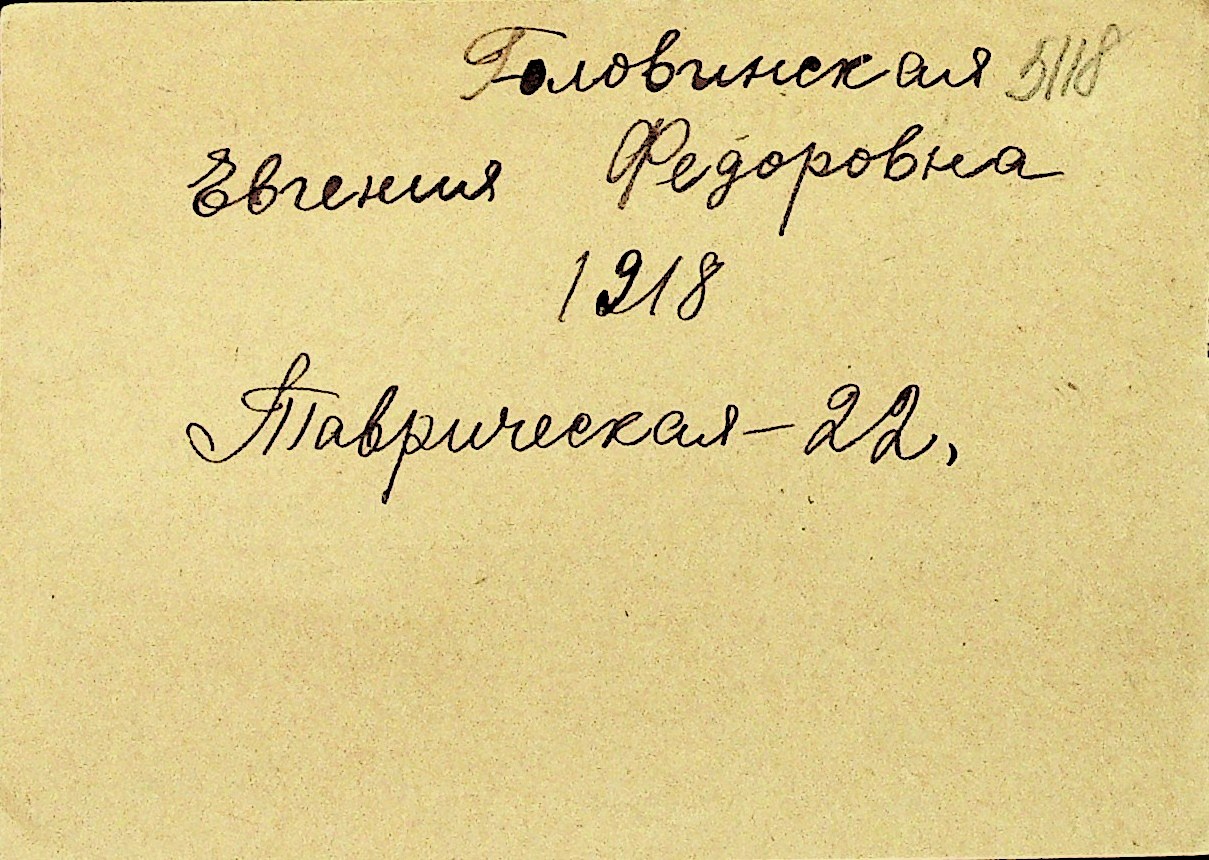 Головинская 5118
Евгения Федоровна
1918
Таврическая - 22,